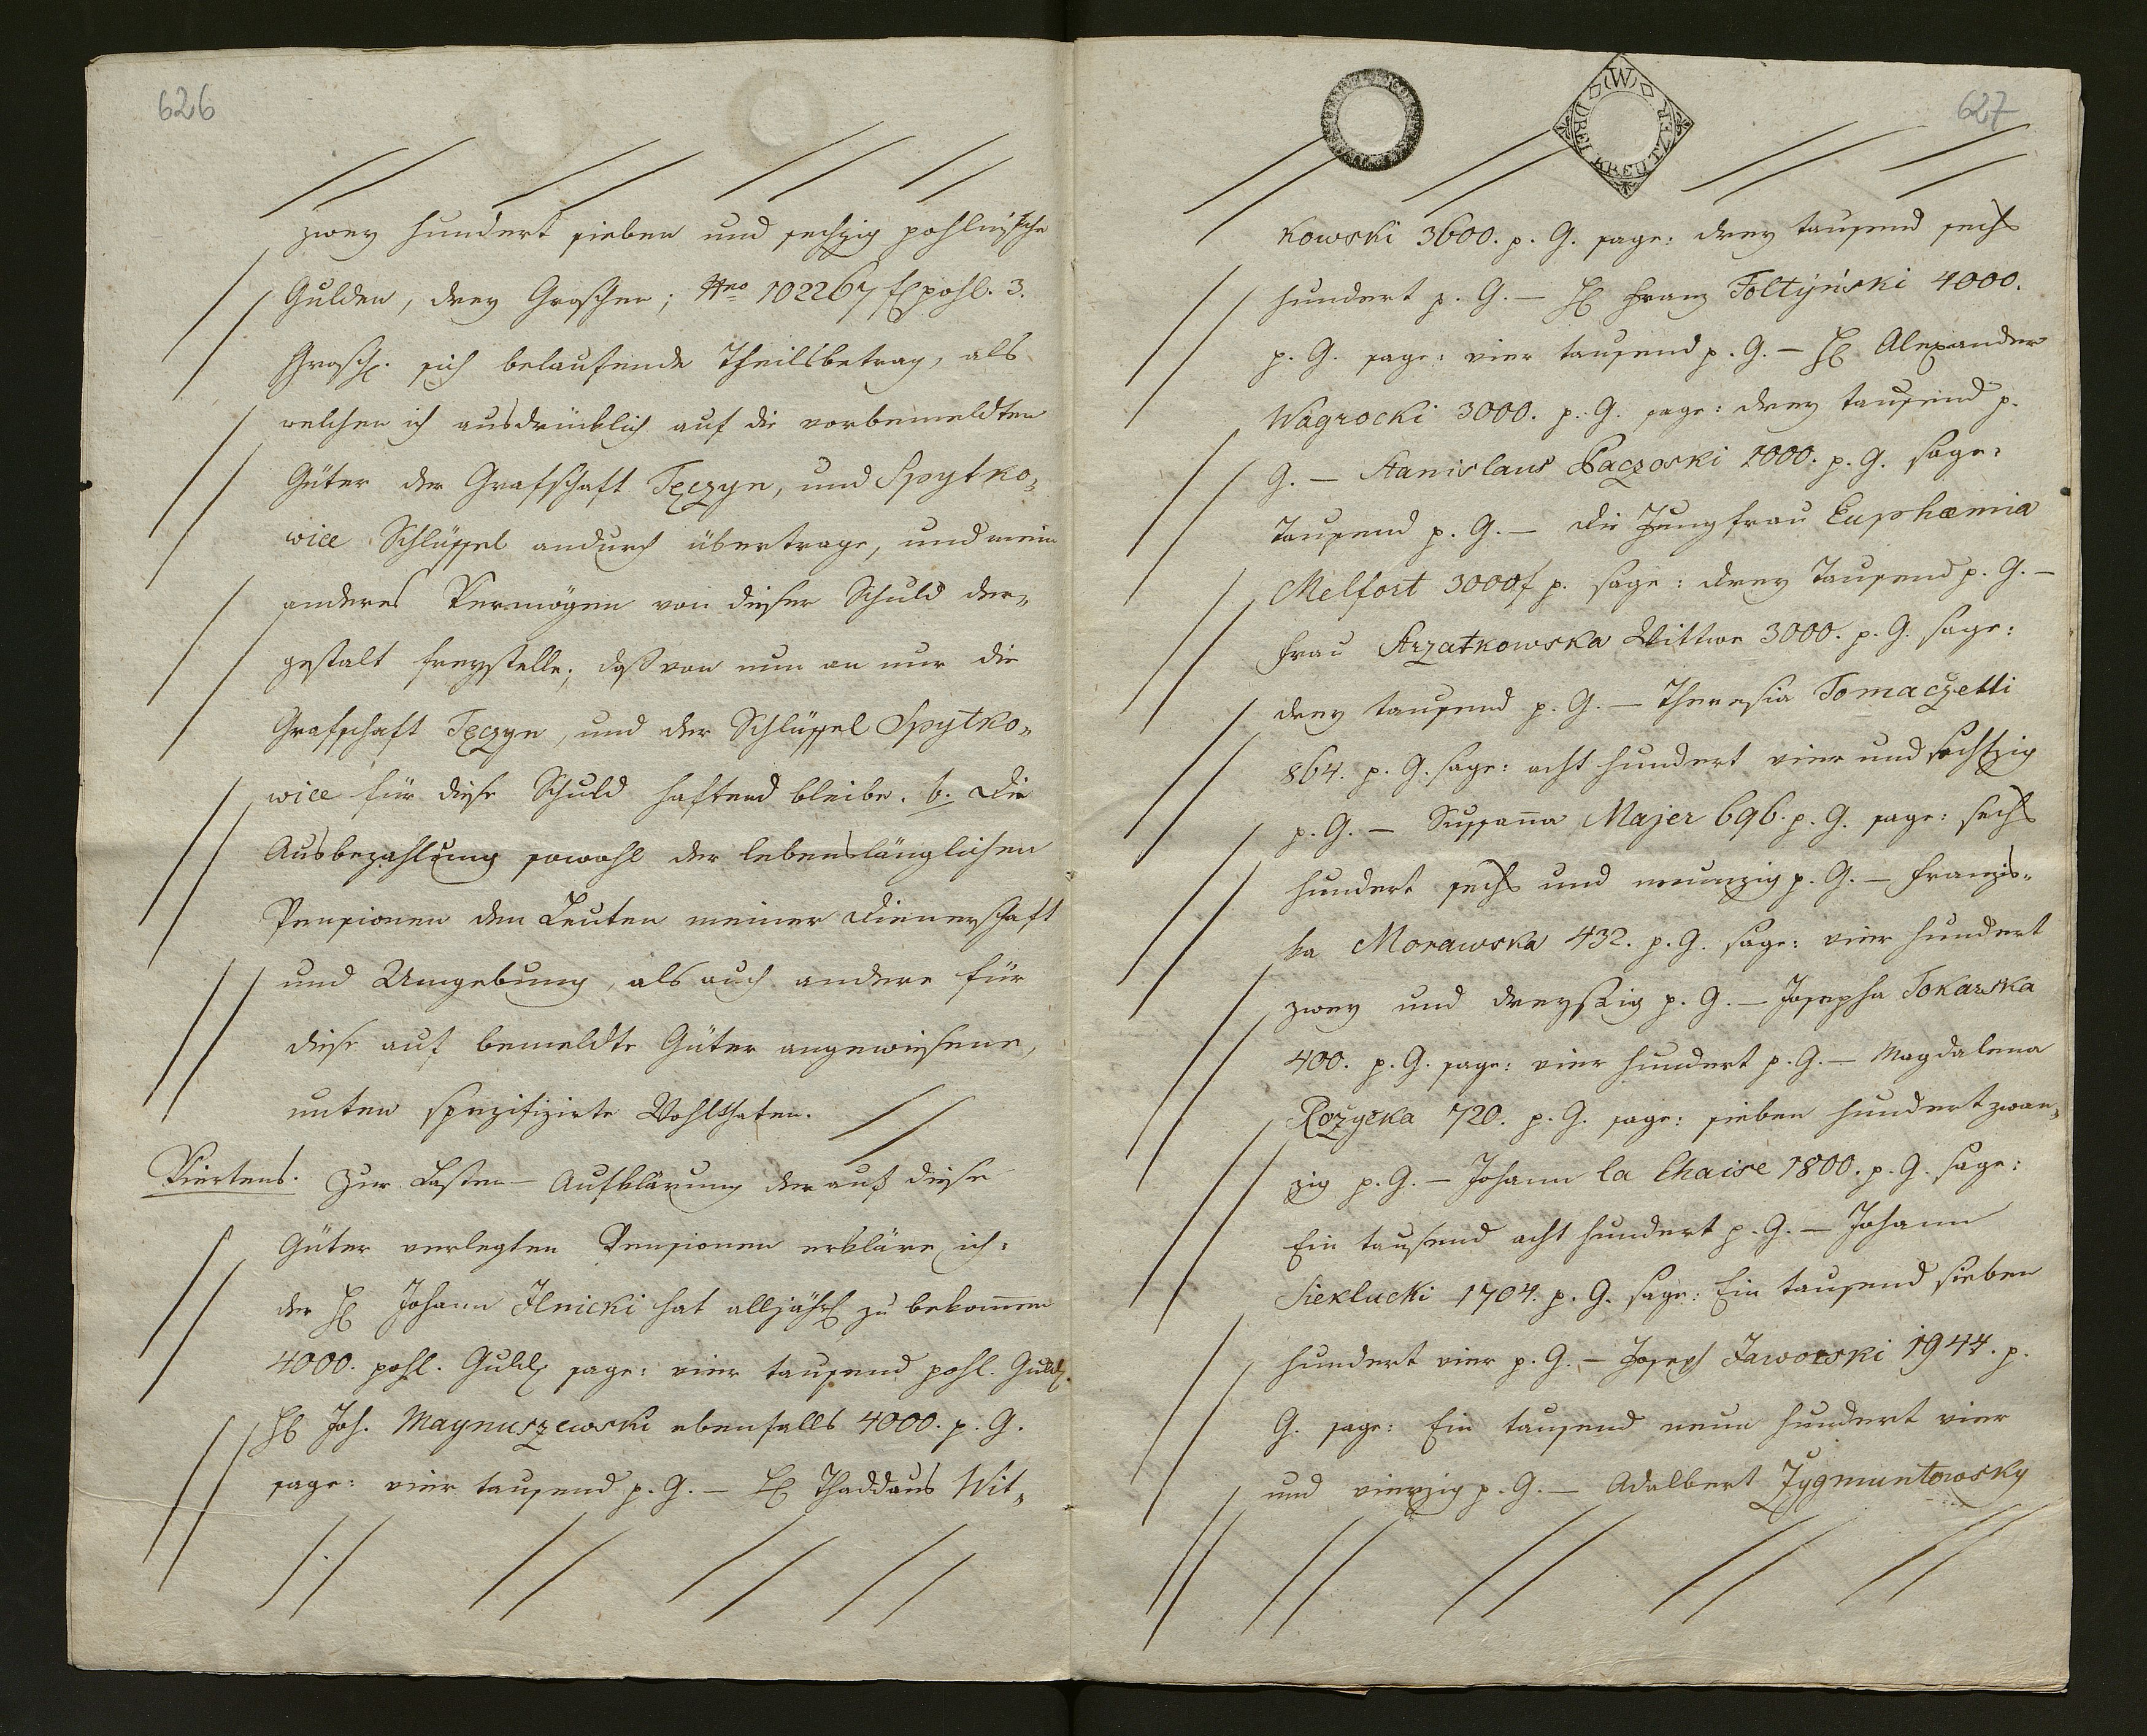 626
zwey hundert sieben und sechzig pohlnische
Gulden, drey Groschen; Nro 102267 f pohl. 3.
Grosch. sich belaufende Theilsbetrag, als
welchen ich ausdrücklich auf die vorbemeldten
Güter der Grafschaft Tęczyn, und Spytko„
wice Schlüssel andurch übertrage, und mein
anderes Vermögen von dieser Schuld der„
gestalt freystelle; daß von nun an nur die
Grafschaft Tęczyn, und der Schlüssel Spytko„
wice für diese Schuld haftend bleibe. b. Die
Ausbezahlung sowohl der lebenslänglichen
Pensionen den Leuten meiner Dienerschaft
und Umgebung, als auch andere für
diese auf bemeldte Güter angewiesene,
unten spezifizirte Wohlthaten.
Viertens. Zur Lasten-Aufklärung der auf diese
Güter verlegten Pensionen erkläre ich:
der H Johann Ilnicki hat alljährl zu bekom̄en
4000. pohl. Guld sage: vier tausend pohl. Guld.
H Joh. Magnuszewski ebenfalls 4000. p. G.
sage: vier tausend p. G. — H Thaddäus Wit„
W
DREI KREUTZER
627
kowski 3600. p. G. sage: drey tausend sechs
hundert p. G. — H Franz Foltyński 4000.
p. G. sage: vier tausend p. G. — H Alexander
Wągrocki 3000. p. G. sage: drey tausend p.
G. — Stanislaus Paczoski 1000. p. G. sage:
Tausend p. G. — die Jungfrau Euphæmia
Melfort 3000 f p. sage: drey Tausend p. G. —
Frau Strzatkowska Wittwe 3000. p. G. sage:
drey tausend p. G. — Theresia Tomaczetti
864. p. G. sage: acht hundert vier und sechszig
p. G. — Sussan̄a Majer 696. p. G. sage: sechs
hundert sechs und neunzig p. G. — Franzis„
ka Morawska 432. p. G. sage: vier hundert
zwey und dreyßig p. G. — Josepha Tokarska
400. p. G. sage: vier hundert p. G. — Magdalena
Rożycka 720. p. G. sage: sieben hundert zwan„
zig p. G. — Johann la Chaise 1800. p. G. sage:
Ein tausend acht hundert p. G. — Johann
Sieklucki 1704. p. G. sage: Ein tausend sieben
hundert vier p. G. — Joseph Jaworski 1944. p.
G. sage: Ein tausend neun hundert vier
und vierzig p. G. — Adalbert Zygmuntowsky